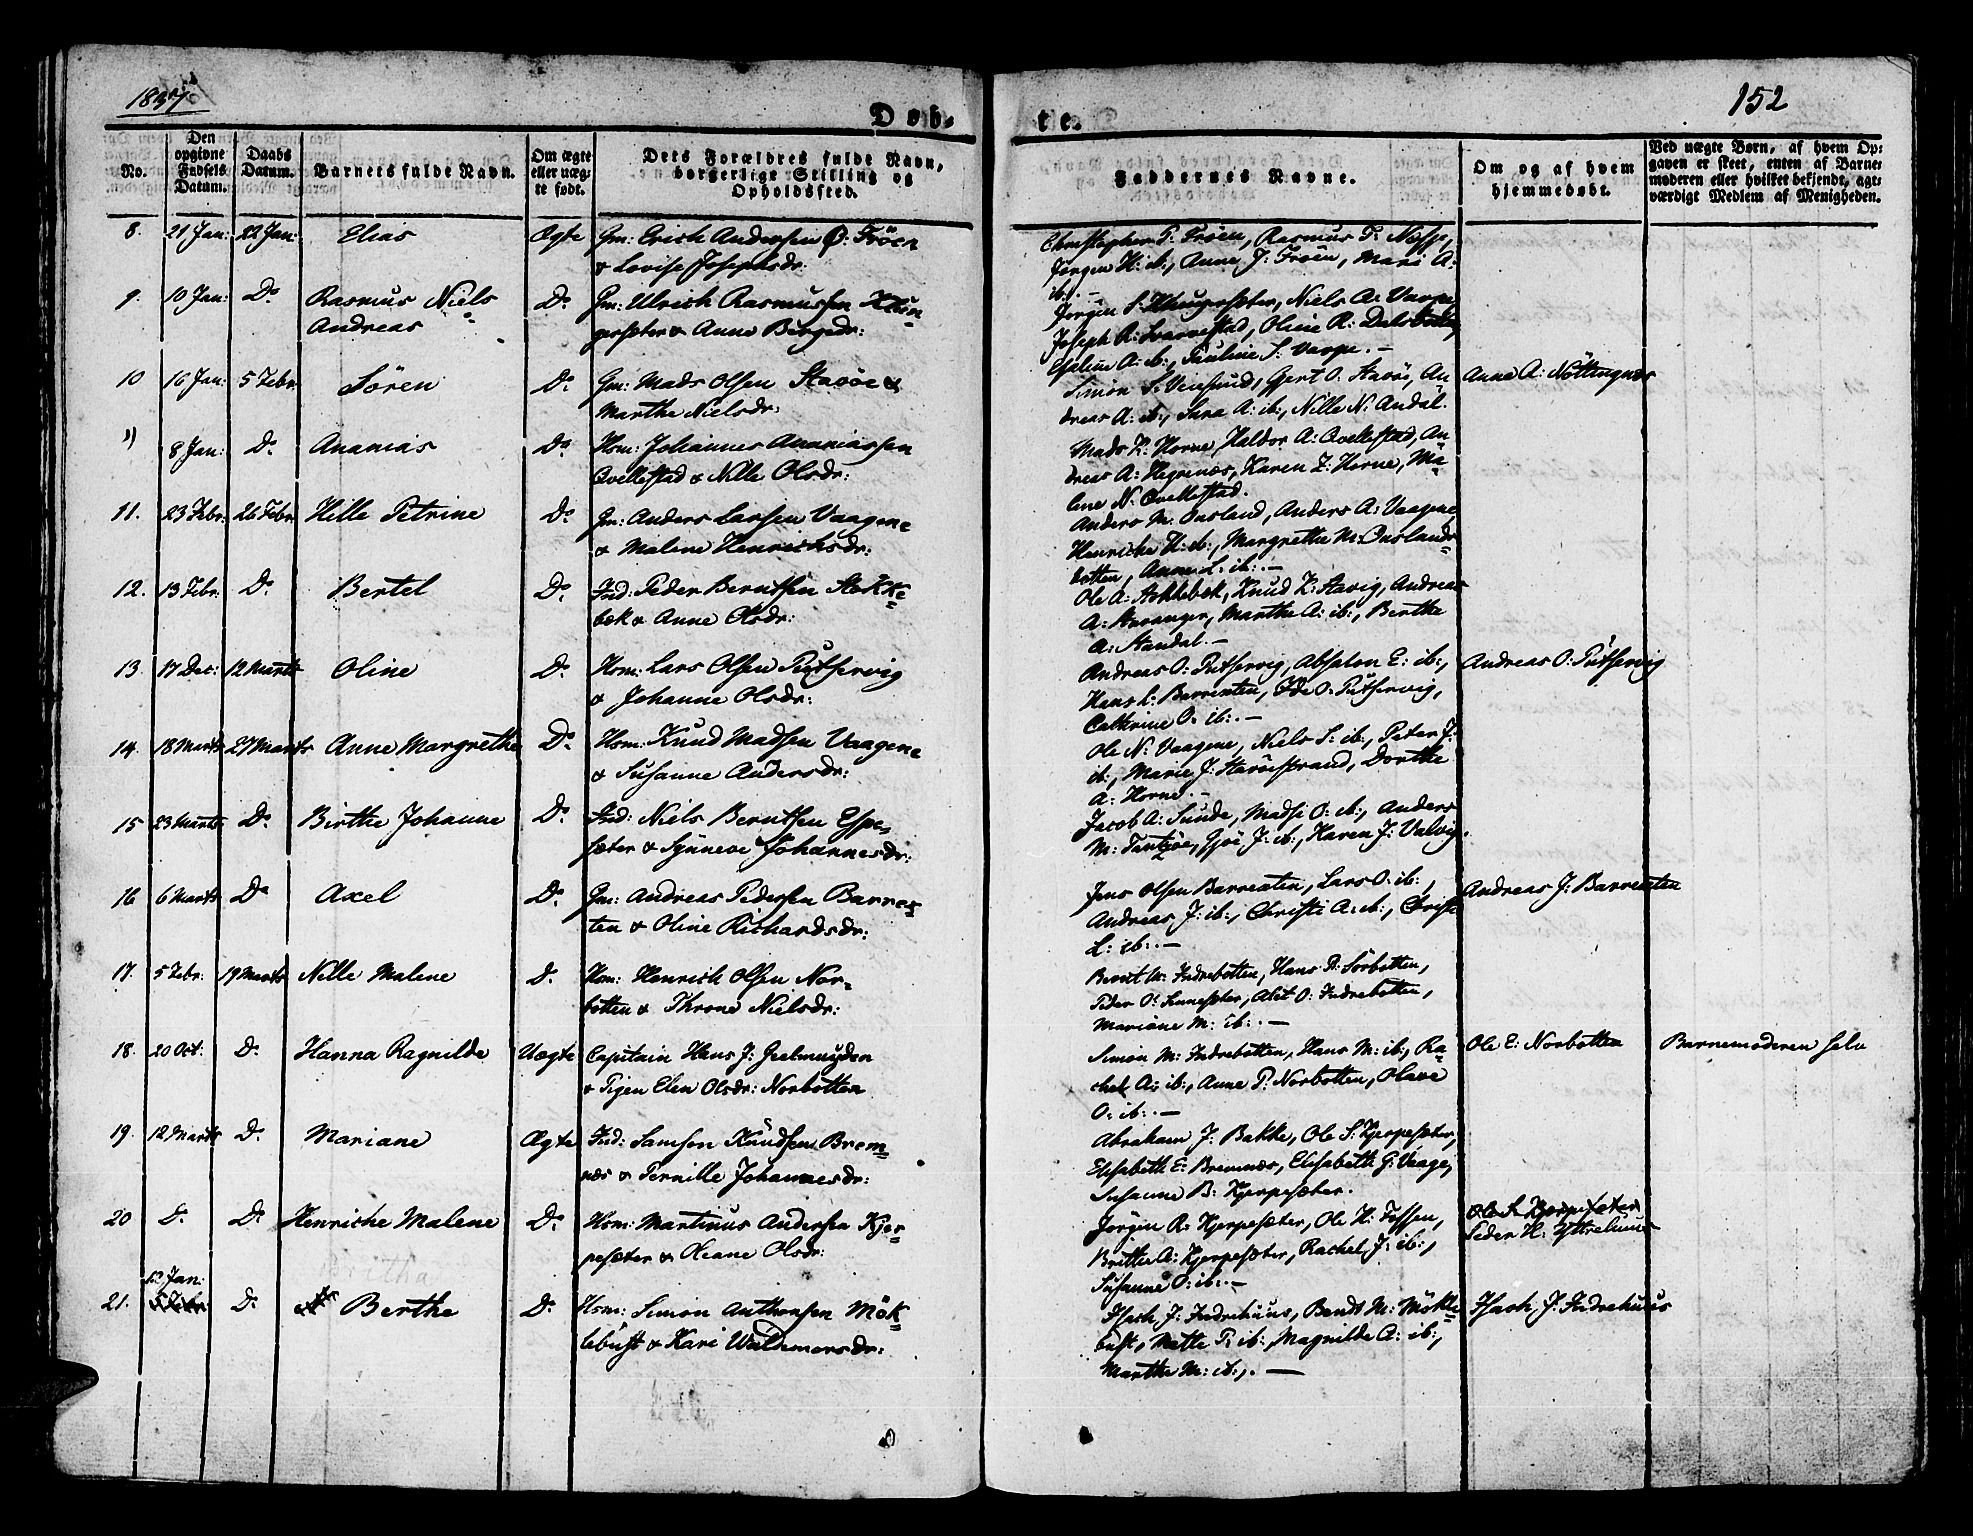 1837
152
Døb-
te.
No.
Den opgivne Fødsels Datum.
Daabs Datum.
Barnets fulde Navn.
Om ægte eller uæg-te født.
Dets Forældres fulde Navn, borgerlige Stilling og Opholdsfted.
Faddernes Navne.
Om og af hvem hjemmedøbt.
Ved uægte Børn, af hvem Op-gaven er skeet, enten af Barne-moderen eller hvilket bekjendt, agt-værdigt Medlem af Menigheden.
8. 21 Jan: 22 Jan: Elias Ægte Gm: Erich Andersen Ø: Fröen
& Lovise Josephsdr:
Christopher P: Frøen, Rasmus P: Nesse,
Jørgen H: ib:, Anne J: Frøen, Mari A:
ib:. —
9. 10 Jan: Do Rasmus Niels Do Gm: Ulrich Rasmussen Klun-
Andreas gesæter & Anne Børgedr:
Jørgen S: Klungesæter, Niels A: Varpe
Joseph R: Svarvestad, Oline R:
A: ib:, Pauline S: Varpe. —
10 16 Jan: 5 Febr: Sören Do Gm: Mads Olsen Stavöe &
Marthe Nielsdr:
Simon S: Veiesund, Gjert O: Stavöe, An-
dreas A: ib:, Sara A: ib:, Nille N: Andal.
Anne A: Nöttingnæs
") 8 Jan: Do Ananias Do Hsm: Johannes Ananiassen
Qvellestad & Nille Olsdr:
Mads Z: Horne, Haldor A: Qvellestad, An-
dreas A: Hegrenæs, Karen Z: Horne, Ma-
lene N: Qvellestad.
11. 23 Febr: 26 Febr: Hille Petrine Do Gm: Anders Larsen Vaagene
& Malene Henrichsdr:
Anders M: Ousland, Anders A: Vaagene,
Henriche H: ib:, Margrethe M: Ouslands-
botten, Anne L: ib:. —
12. 13 Febr: Do Bertel Do Ind: Peder Berntsen Askke-
bæk & Anne Olsdr:
Ole A: Askkebæk, Knud Z: Stavig, Andreas
A: Stavanger, Marthe A: ib:, Berthe
A: Standal. —
13. 17 Dec: 12 Marts Oline Do Hsm: Lars Olsen Rutservig
& Johanne Olsdr:
Andreas O: Rutservig, Absalon E: ib:,
Hans L: Barrenten, Ode O: Rutservig,
Cathrine O: ib:. —
Andreas O: Rutservig
14. 18 Marts 27 Marts Anne Margrethe Do Hsm: Knud Madsen Vaagene
& Susanne Andersdr:
Ole N: Vaagene, Niels S: ib:, Peter J:
ib:, Marie J: Stavöestrand, Dorthe
A: Horne. —
15 23 Marts Do Birthe Johanne Do Ind: Niels Berntsen Espe-
sæter & Synneve Johannesdr:
Jacob A: Sunde, Madsi O: ib:, Anders
M: Tansöe, Gjöe J: ib:, Karen J: Valvig.
16 6 Marts Do Axel Do Gm: Andreas Pedersen Barres-
ten & Oline Richardsdr:
Jens Olsen Barresten, Lars O: ib:,
Andreas J: ib:, Christi A: ib:, Christi
L: ib:. —
Andreas J: Barresten
17. 5 Febr: 19 Marts Nille Malene Do Hsm: Henrich Olsen Nor-
botten & Throne Nielsdr:
Bernt M: Indrebotten, Hans R: Sörbotten,
Peder O: Sennesæter, Alet O: Indrebotten,
Mariane M: ib:. —
18. 20 Oct: Do Hanna Ragnilde Uægte Capitain Hans J: Geelmuyden
& Pigen Elen Olsdr: Norbotten
Simon M: Indrebotten, Hans M: ib:, Ra-
chel A: ib:, Anne P: Norbotten, Olave
O: ib:. —
Ole E: Norbotten
Barnemoderen selv
19. 12 Marts Do Mariane Ægte Ind: Samson Knudsen Brem-
næs & Pernille Johannesdr:
Abraham J: Bakke, Ole S: Kjerpesæter,
Elisabeth E: Bremnæs, Elisabeth G: Vaage,
Susanne B: Kjerpesæter.
20 Do Do Henriche Malene Do Hsm: Martinus Andersen Kjer-
pesæter & Oliane Olsdr:
Jørgen R: Kjerpesæter, Ole H: Fossen,
Britte A: Kjerpesæter, Rachel J: ib:,
Susanne O: ib:. —
Ole S: Kjerpesæter
Peder H: Yttrehuus
21. 13 Jan: Do Berthe Do Hsm: Simon Anthonsen Mök-
lebust & Kari Waldemarsdr:
Isach J: Indrehuus, Bendt M: Mökle-
bust, Mette P: ib:, Magnilde A: ib:,
Marthe M: ib:. —
Isach J: Indrehuus